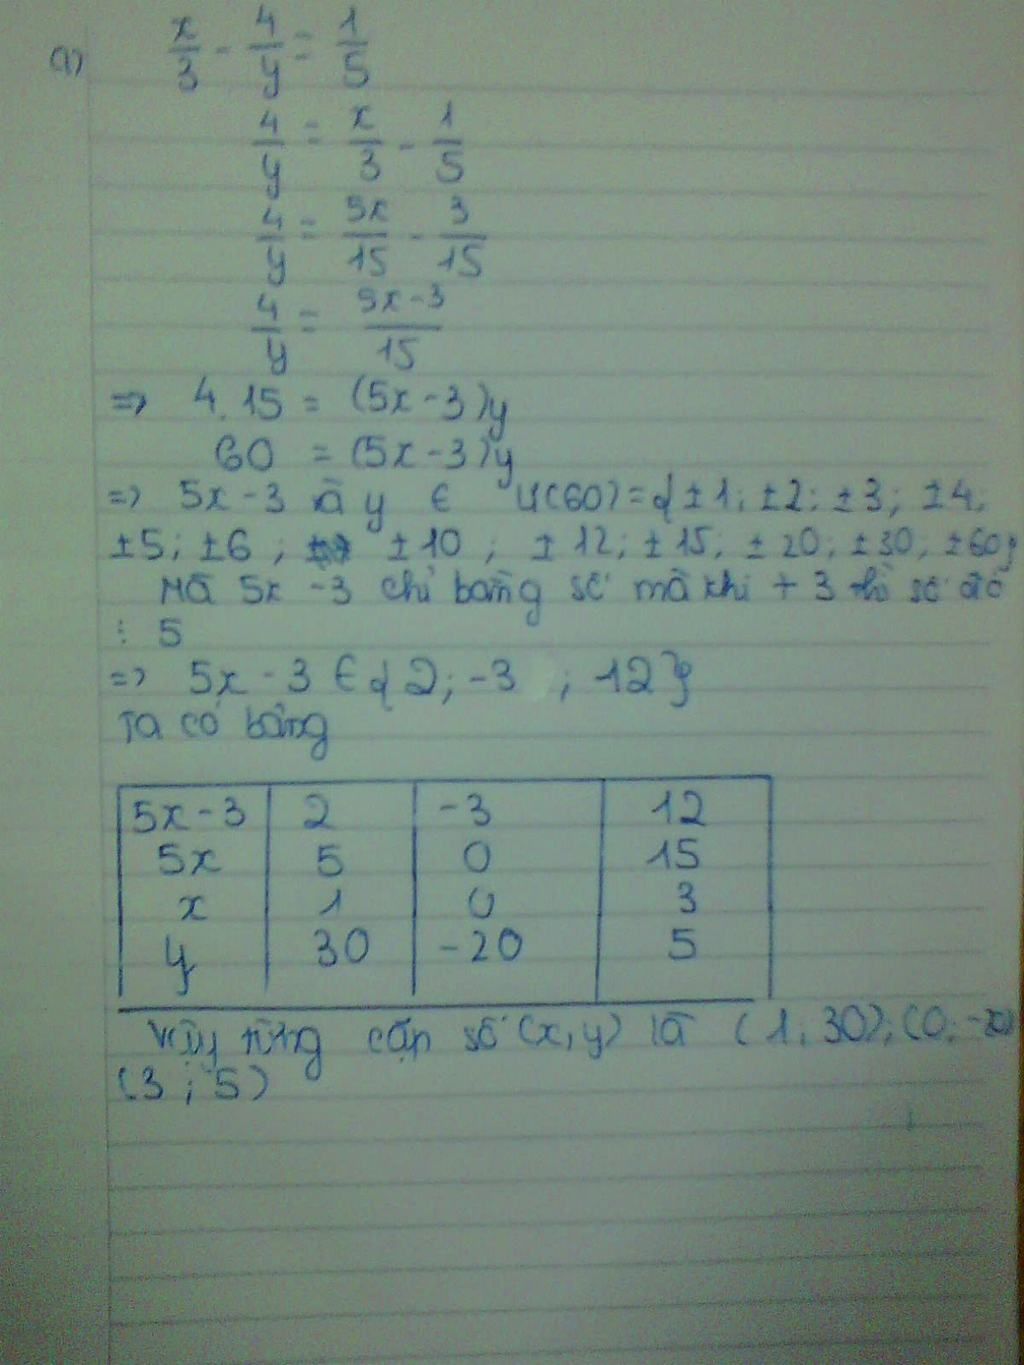 a) x/3 - 4/y = 1/5
4/y = x/3 - 1/5
4/y = 5x/15 - 3/15
4/y = 5x-3/15
=> 4.15 = (5x-3)y
60 = (5x-3)y
=> 5x-3 và y ∈ Ư(60)={±1; ±2; ±3; ±4;
±5; ±6; ±10; ±12; ±15; ±20; ±30; ±60}
Mà 5x -3 chỉ bằng số mà khi + 3 thì số đó
⋮ 5
=> 5x - 3 ∈ {2; -3 ; 12}
Ta có bảng
5x-3 2 -3 12
5x 5 0 15
x 1 0 3
y 30 -20 5
Vậy từng cặp số (x,y) là (1; 30); (0; -20)
(3 ; 5)